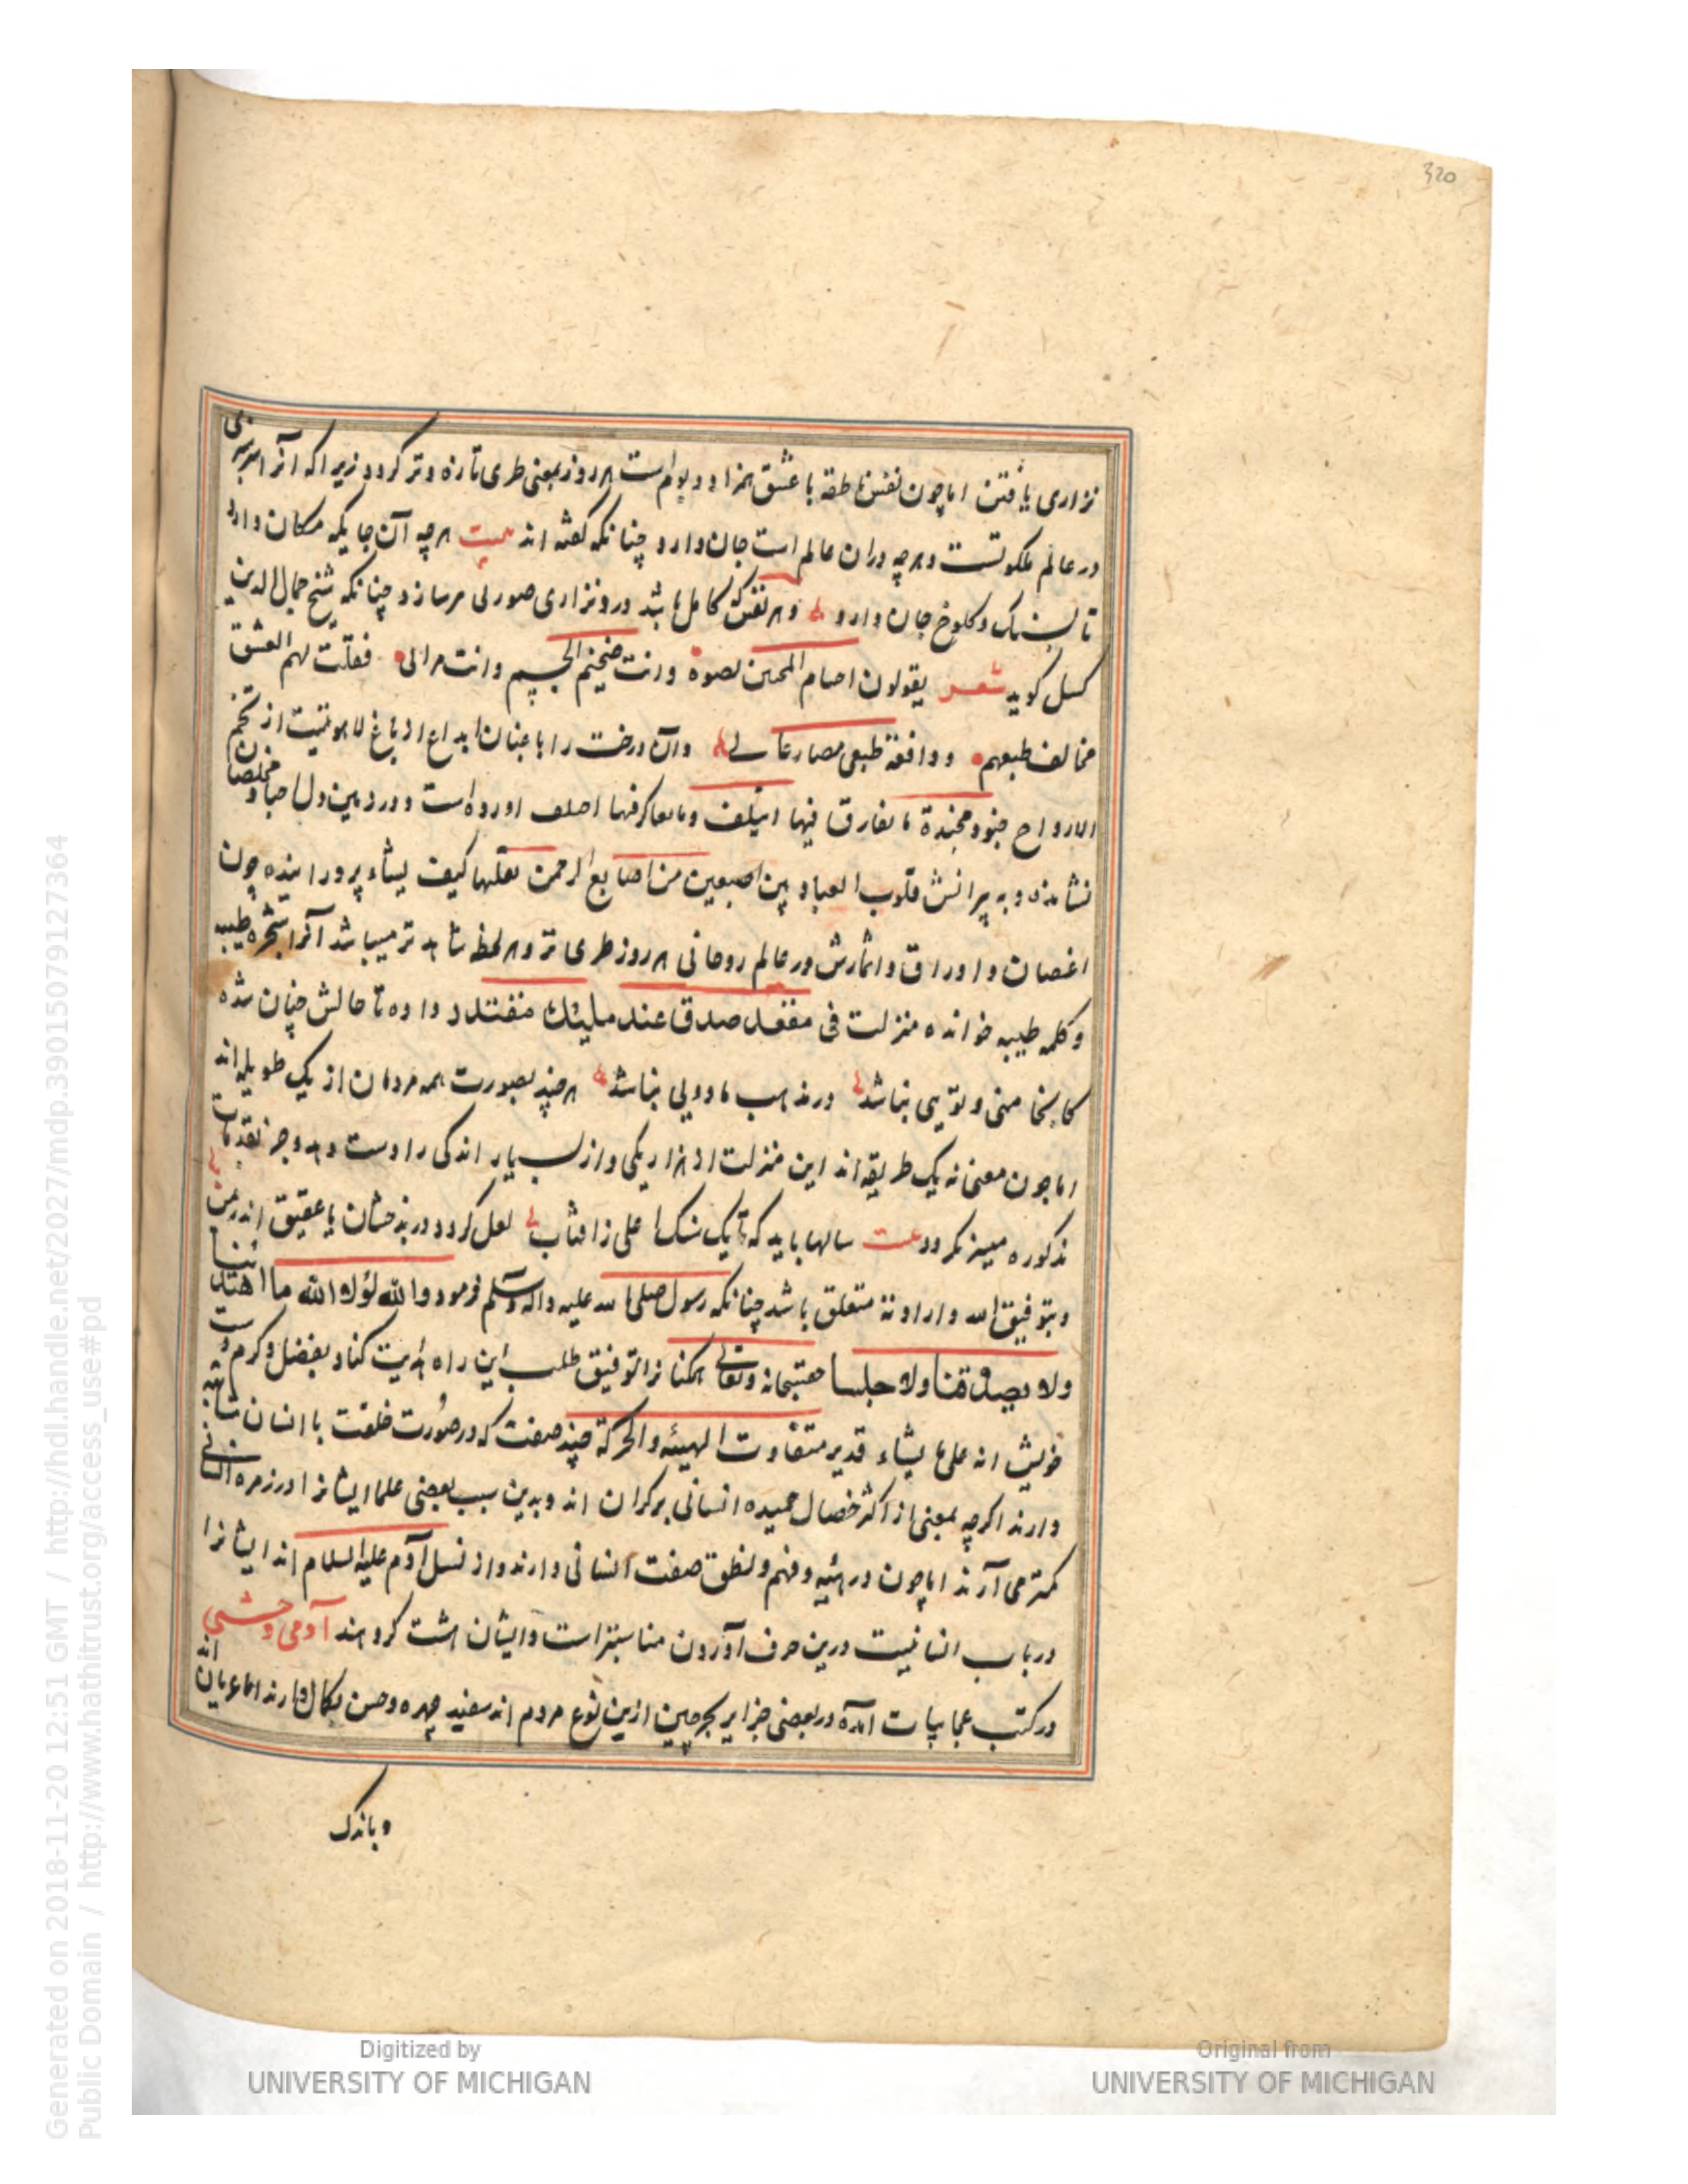 320
نزاری یافتن اما چون نفس ناطقه با عشق همزاد و بوام است هر روز بمعنی طری تازه و تر کردد زیرا که آنرا سرسبزی
در عالم ملکوتست و هر چه دران عالم است جان دارد چنانکه کفته اند بیت هر چه آن جایکه مکان دارد
تا بسنک و کلوخ جان دارد و هر نفس که کامل باشد درو نزاری صورتی مرسازد چنانکه شیخ جمال الدین
کوید شعر یقولون اجسام المحبین نضوة وانت ضخیم الجسم وانت مرائی فقلت لهم العشق
مخالف طبعهم و وافقه طبعی فصار غذائی وان درخت را باغبنان ابداع از باغ لاهوتیت از تخم
الارواح جنود مجندة ما تعارف فیها ایتلف وما تناکر فیها اختلف اورده است و در زمین دل احباء مخلصان
نشانده و به پیرانش قلوب العباد بین اصبعین من اصابع الرحمن یقلبها کیف یشاء پرورانیده چون
اغصان و اوراق و اثمارش در عالم روحانی هر روز طری تر و هر لحظه شاهد تر میباشد آنرا شجره طیبه
و کلمه طیبه خوانده منزلت فی مقعد صدق عند ملیك مقتدر داده تا حالش چنان شده
کاینجا منی و توییی نباشد در مذهب ما دویی نباشد هر چند بصورت همه مردمان از یک طویله اند
اما چون معنی نه یک طریقه اند این منزلت از هزار یکی و از بسیار اندکی را دست دهد و جز بمقدمات
مذکوره میسر نکردد بیت سالها باید که تا یک سنک اصلی ز افتاب لعل کردد در بدخشان یا عقیق اندر یمن
و بتوفیق الله و ارادته متعلق باشد چنانکه رسول صلی الله علیه واله وسلم فرمود والله لولا الله ما اهتدینا
ولا تصدقنا ولا صلینا حقسبحانه و تعالی همکنانرا توفیق طلب این راه هدایت کناد بفضل و کرم
خویش انه علی ما یشاء قدیر متفاوت الهیئه والحرکة چند صفت که در صورت خلقت با انسان مشابهت
دارند اکرچه بمعنی از اکثر خصال حمیده انسانی برکران اند و بدین سبب بعضی علما ایشانرا در زمره انسانی
کمتر می آرند اما چون در هیئه و فهم و نطق صفت انسانی دارند و از نسل آدم علیه السلام اند ایشانرا
در باب انسانیت درین حرف آوردن مناسبتر است و ایشان هشت کروهند آدمی وحشی
در کتب عجایبات آمده در بعضی جزایر بحر چین ازین نوع مردم اند سفید چهره و حسن بکمال دارند اما عریان اند
و باندک
Generated on 2018-11-20 12:51 GMT / http://hdl.handle.net/2027/mdp.39015079127364
Public Domain / http://www.hathitrust.org/access_use#pd
Digitized by
UNIVERSITY OF MICHIGAN
Original from
UNIVERSITY OF MICHIGAN